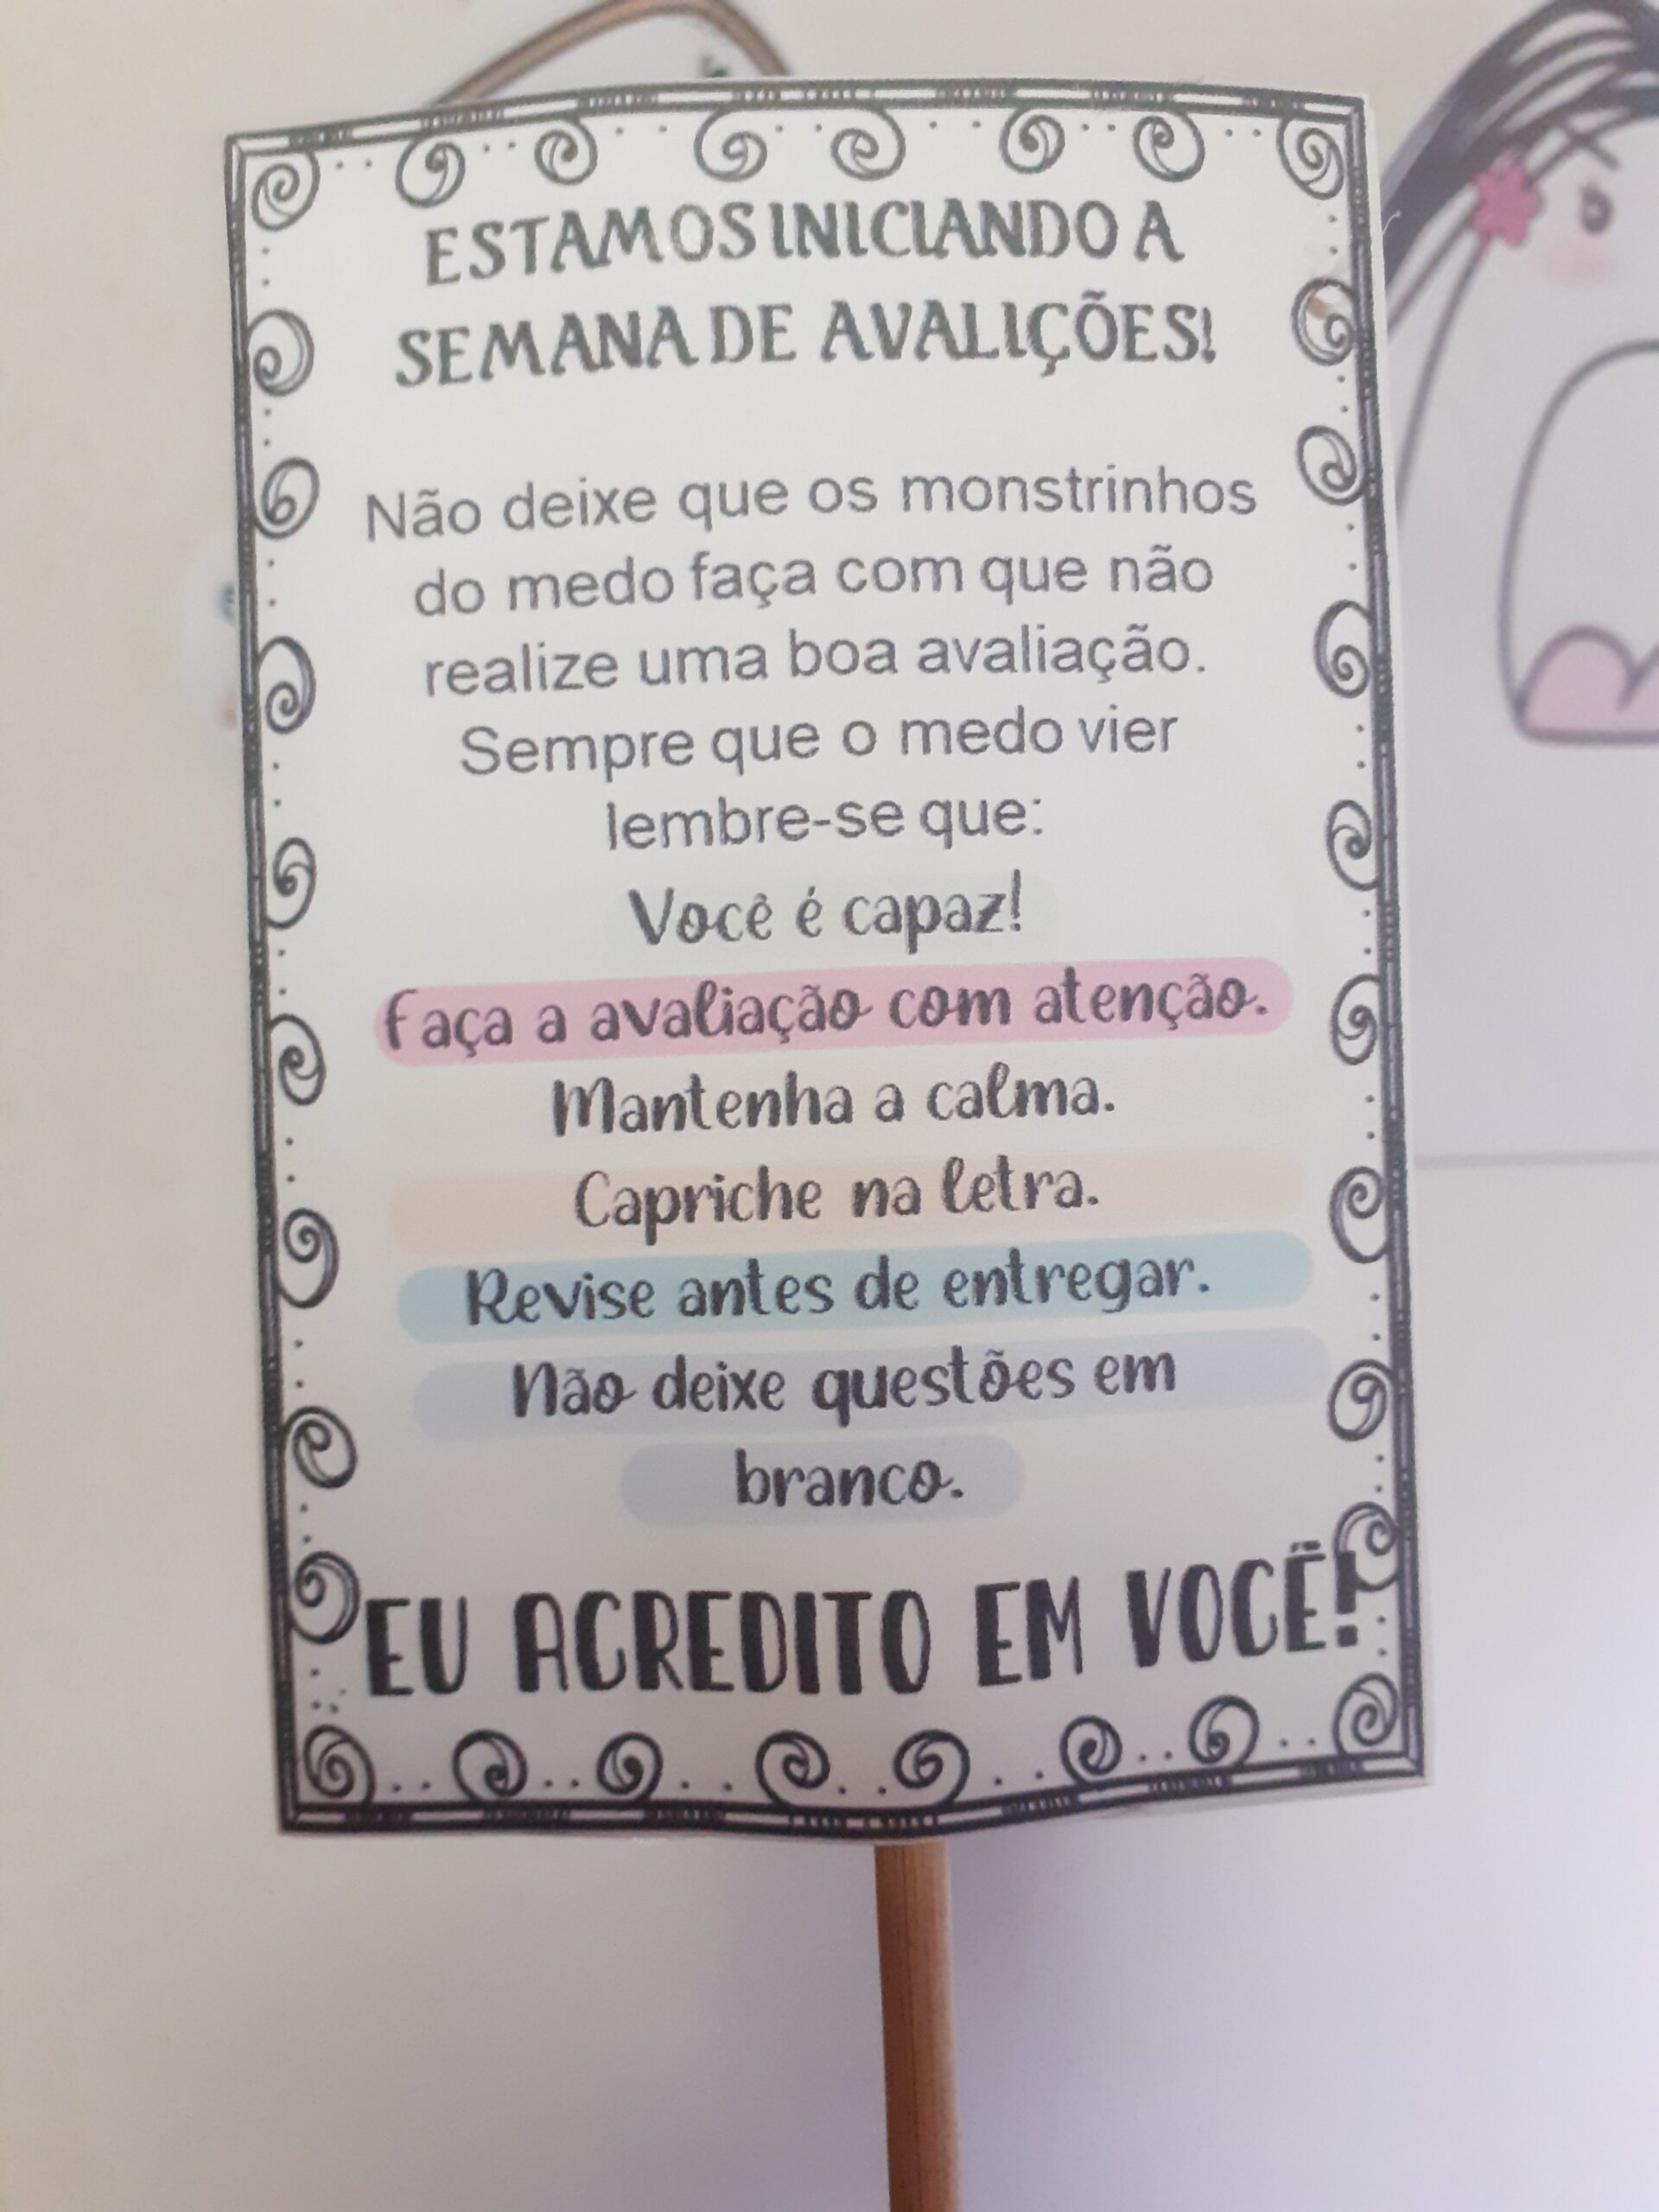 ESTAMOS INICIANDO A
SEMANA DE AVALIÇÕES!
Não deixe que os monstrinhos
do medo faça com que não
realize uma boa avaliação.
Sempre que o medo vier
lembre-se que:
Você é capaz!
Faça a avaliação com atenção.
Mantenha a calma.
Capriche na letra.
Revise antes de entregar.
Não deixe questões em
branco.
EU ACREDITO EM VOCÊ!